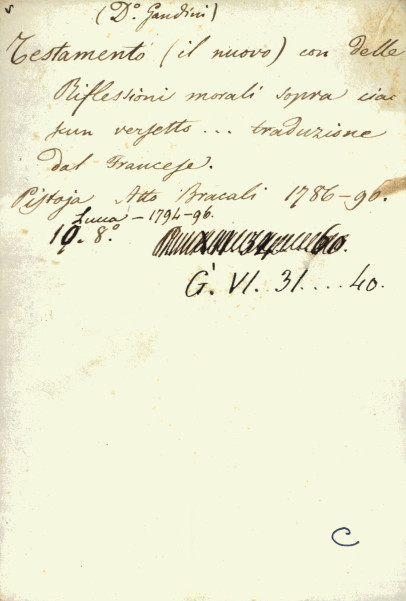 (D.º Gandini)
Testamento (il nuovo) con delle
Riflessioni morali sopra cia-
scun versetto ... traduzione
dal Francese.
Pistoja Atto Bracali 1786-96.
Lucca - 1794-96.
8.º
G. VI. 31....40.
C